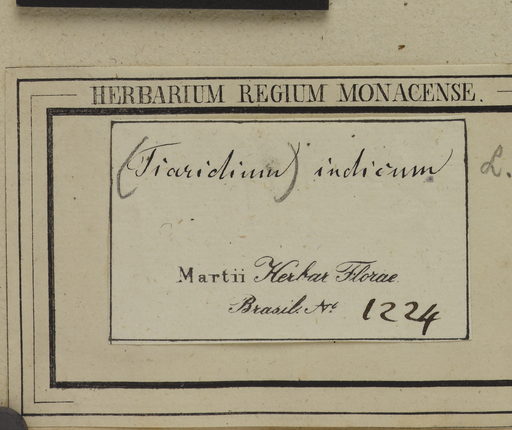 HERBARIUM REGIUM MONACENSE.
(Tiaridium) indicum L.
Martii Herbar Florae
Brasil. No 1224